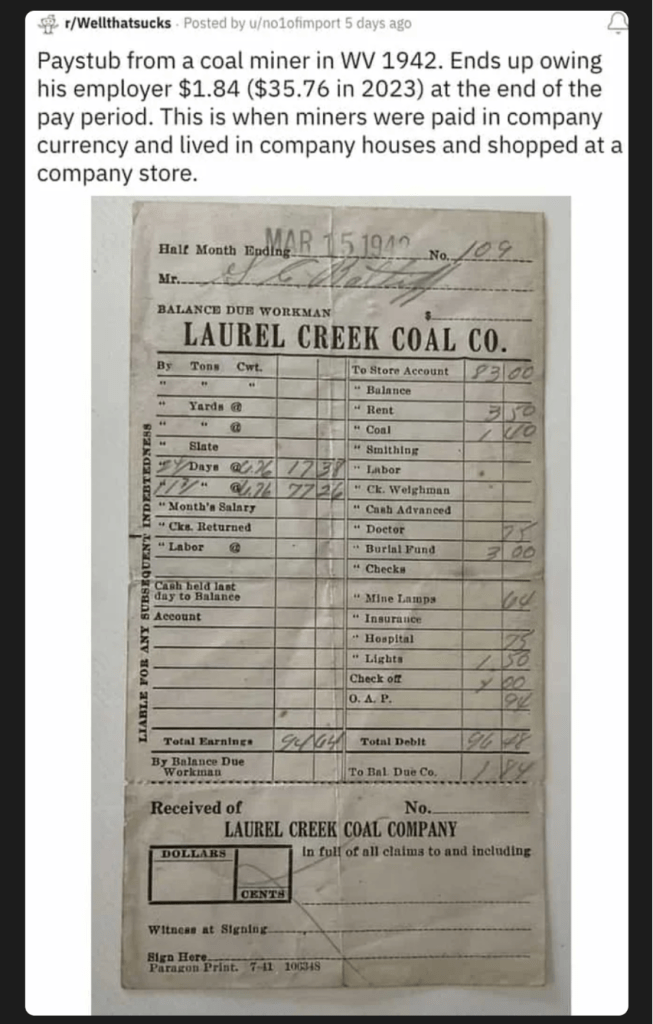 r/Wellthatsucks · Posted by u/no1ofimport 5 days ago
Paystub from a coal miner in WV 1942. Ends up owing
his employer $1.84 ($35.76 in 2023) at the end of the
pay period. This is when miners were paid in company
currency and lived in company houses and shopped at a
company store.
Half Month Ending MAR 15 1942 No. 109
Mr.
BALANCE DUE WORKMAN $
LAUREL CREEK COAL CO.
By Tons Cwt. To Store Account 83 00
" " " " Balance
" Yards @ " Rent 3 50
" " @ " Coal 1 40
" Slate " Smithing
Days @ 17 38 " Labor
" @ 77 26 " Ck. Weighman
" Month's Salary " Cash Advanced
" Cks. Returned " Doctor 75
" Labor @ " Burial Fund 3 00
" Checks
Cash held last
day to Balance " Mine Lamps 64
Account " Insurance
" Hospital 75
" Lights 1 50
Check off 00
O. A. P. 94
Total Earnings 94 64 Total Debit 96 48
By Balance Due
Workman To Bal. Due Co. 1 84
LIABLE FOR ANY SUBSEQUENT INDEBTEDNESS
Received of No.
LAUREL CREEK COAL COMPANY
DOLLARS In full of all claims to and including
CENTS
Witness at Signing
Sign Here
Paragon Print. 7-41 106348